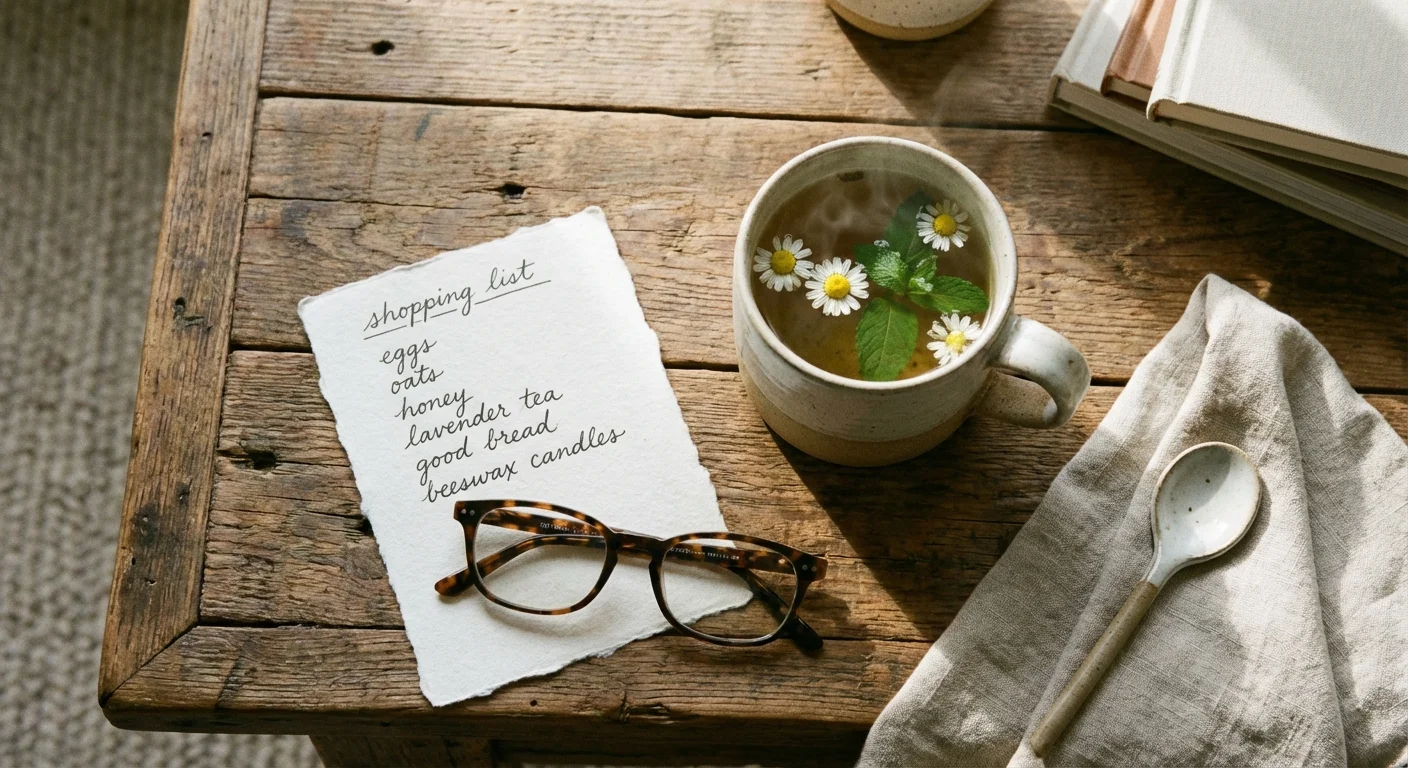 shopping list
eggs
oats
honey
lavender tea
good bread
beeswax candles